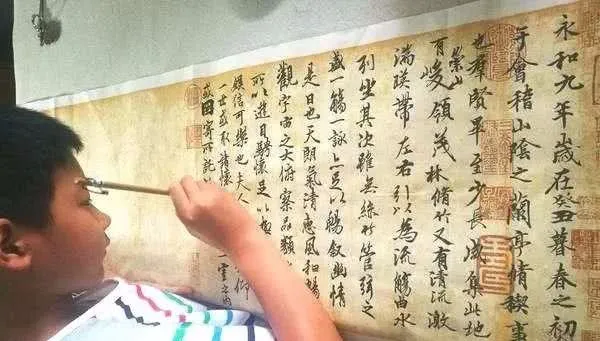 永和九年歲在癸丑暮春之初
于會稽山陰之蘭亭脩禊事
也羣賢畢至少長咸集此地
有崇山峻領茂林脩竹又有清流激
湍暎帶左右引以為流觴曲水
列坐其次雖無絲竹管弦之
盛一觴一詠亦足以暢叙幽情
是日也天朗氣清惠風和暢
觀宇宙之大俯察品類
所以遊目騁懷足以極
娛信可樂也夫人仰
一世或取諸懷一室之內
或因寄所託